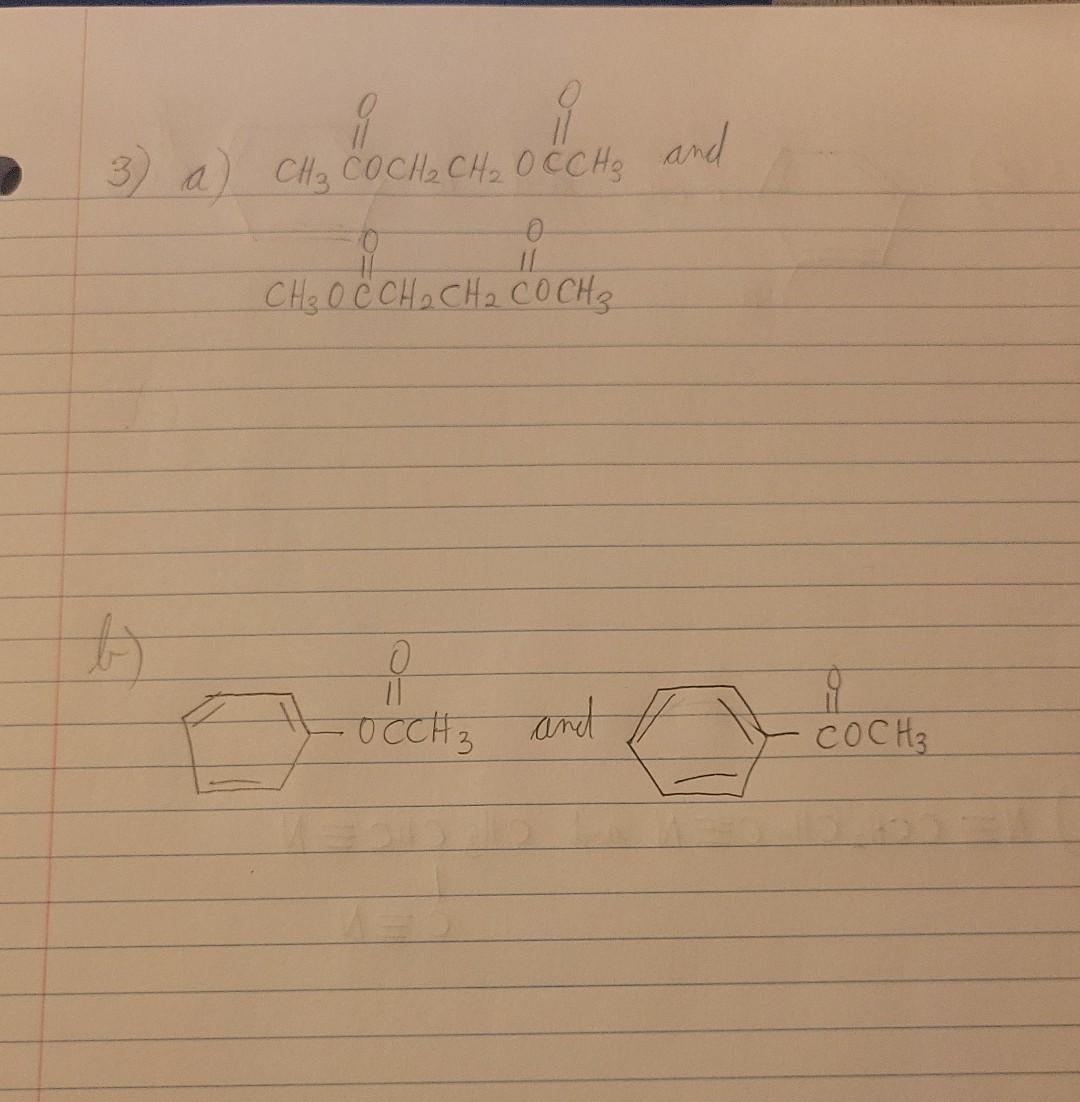 O O
3) a) CH3COCH2CH2OCCH3 and
O O
CH3OCCH2CH2COCH3
b)
O O
OCCH3 and COCH3